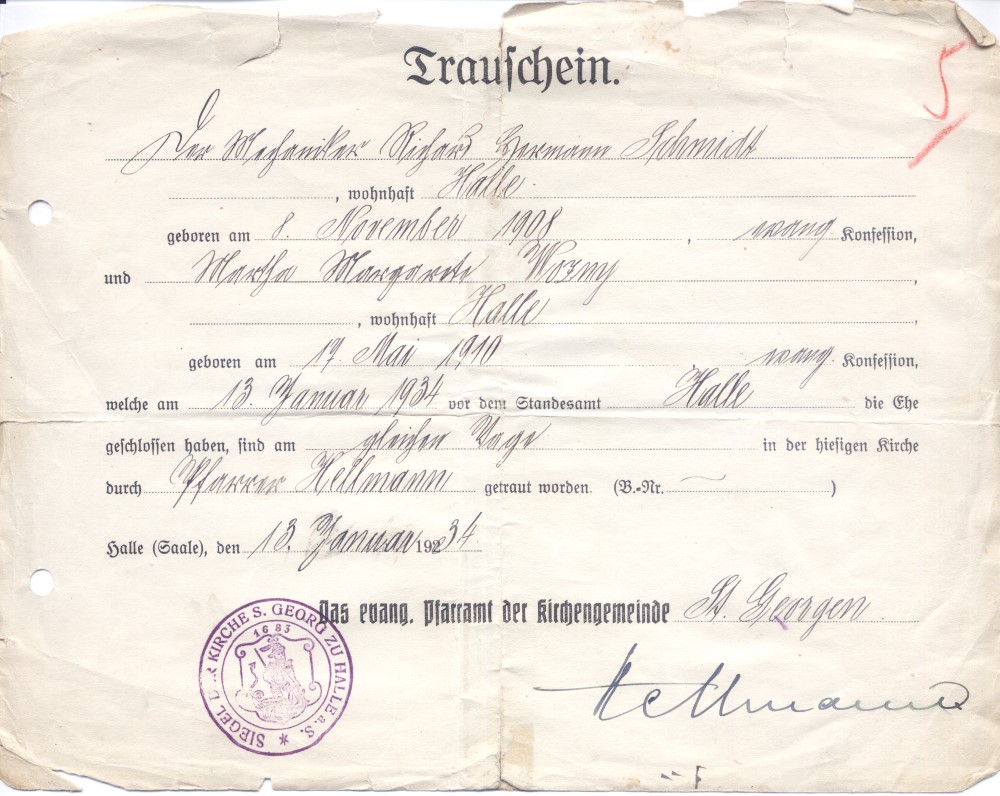 Trauschein.
5
Der Mechaniker Richard Hermann Schmidt
, wohnhaft Halle
geboren am 8. November 1908, evang. Konfession,
und Martha Margarete Wozny,
, wohnhaft Halle,
geboren am 17. Mai 1910, evang. Konfession,
welche am 13. Januar 1934 vor dem Standesamt Halle die Ehe
geschlossen haben, sind am gleichen Tage in der hiesigen Kirche
durch Pfarrer Hellmann getraut worden. (B.-Nr. )
Halle (Saale), den 13. Januar 1934.
Das evang. Pfarramt der Kirchengemeinde St. Georgen
SIEGEL DER KIRCHE S. GEORG ZU HALLE a. S.
1683
Hellmann